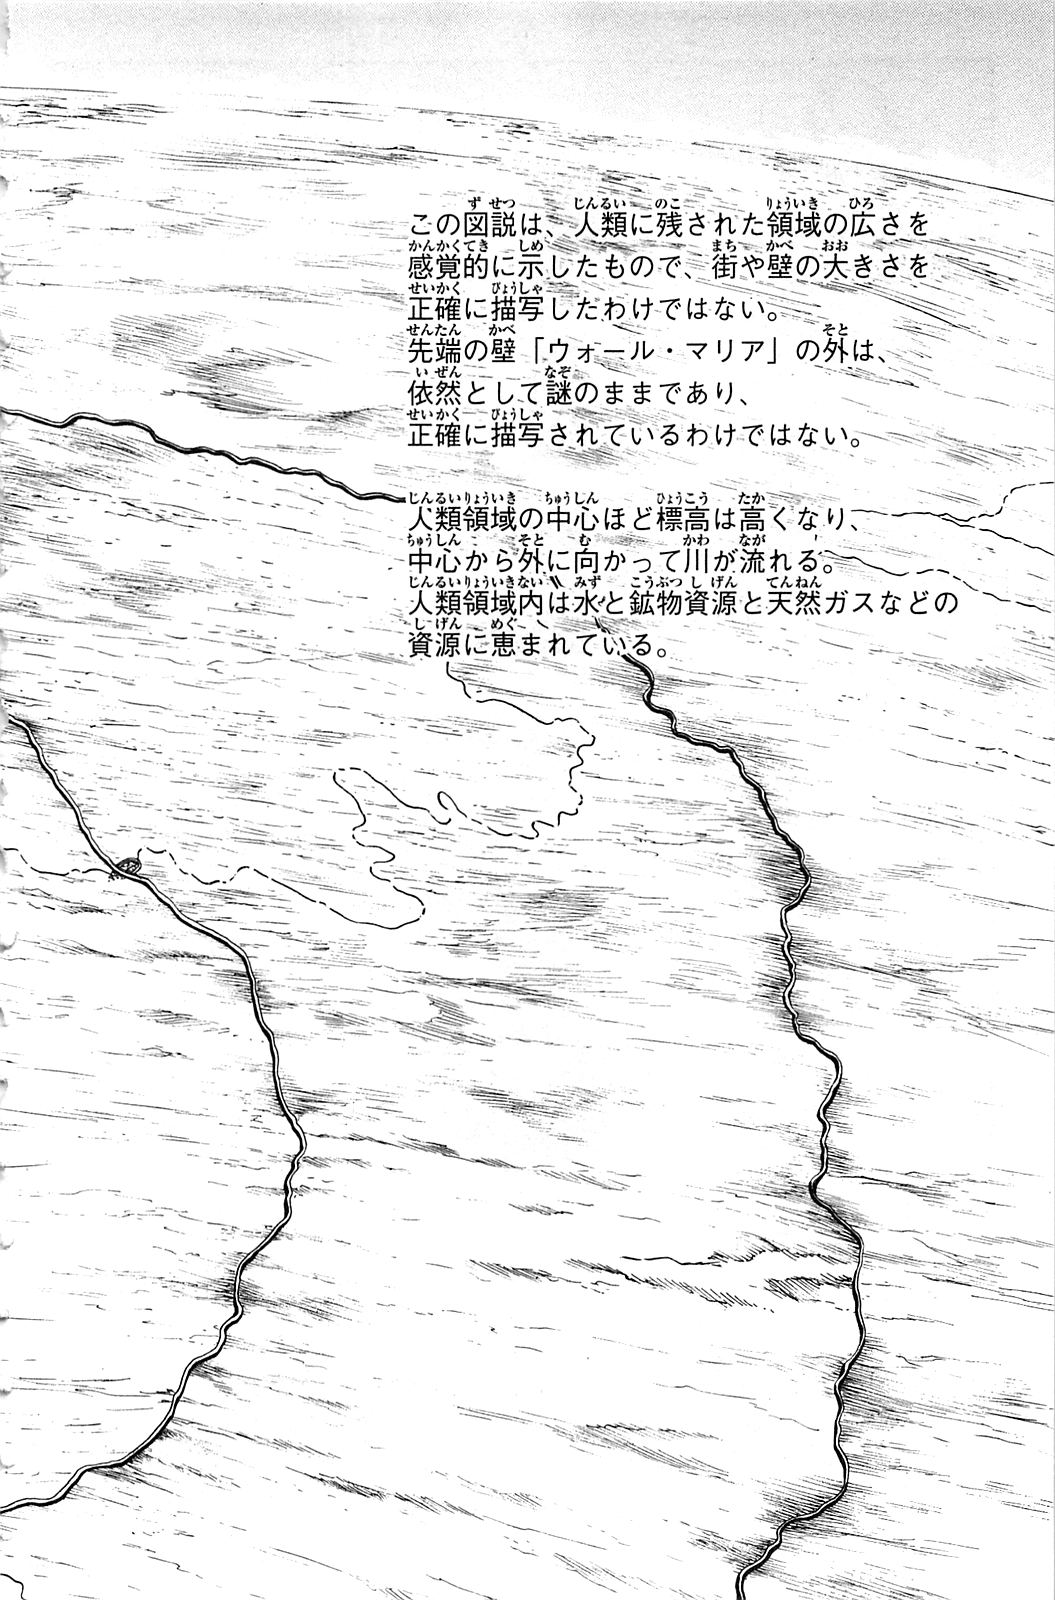 この図説は、人類に残された領域の広さを
感覚的に示したもので、街や壁の大きさを
正確に描写したわけではない。
先端の壁「ウォール・マリア」の外は、
依然として謎のままであり、
正確に描写されているわけではない。
人類領域の中心ほど標高は高くなり、
中心から外に向かって川が流れる。
人類領域内は水と鉱物資源と天然ガスなどの
資源に恵まれている。